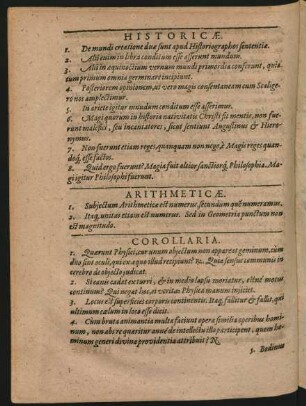 HISTORICÆ.
1. De mundi creatione duæ sunt apud Historiographos sententiæ.
2. Alii enim in libra conditum esse asserunt mundum.
3. Alii in æquinoctium vernum mundi primordia conferunt, quia
tum primum omnia germinare incipiunt.
4. Posteriorem opinionem, ut vero magis consentaneam cum Scalige-
ro nos amplectimur.
5. In ariete igitur mundum conditum esse asserimus.
6. Magi quorum in historia nativitatis Christi fit mentio, non fue-
runt malefici, seu incantatores, sicut sentiunt Augustinus & Hiero-
nymus.
7. Non fuerunt etiam reges, quanquam non nego, à Magis reges quan-
doq́; esse factos.
8. Quid ergo fuerunt? Magia fuit altior sanctiorq́; Philosophia. Ma-
gi igitur Philosophi fuerunt.
ARITHMETICÆ.
1. Subjectum Arithmeticæ est numerus, secundum quē numeramus.
2. Itaq; unitas etiam est numerus. Sed in Geometria punctum non
est magnitudo.
COROLLARIA.
1. Quærunt Physici, cur unum objectum non appareat geminum, cum
duo sint oculi, qui ex æquo illud recipiunt? Rx. Quia sensus communis in
cerebro de objecto judicat.
2. Sticanus cadat ex turri, & in medio lapsu moriatur, estne motus
continuus? Qui negat hoc, ut veritas Physica manum injiciet.
3. Locus est superficies corporis continentis. Itaq; fallitur & fallit, qui
ultimum cælum in loco esse dicit.
4. Cum bruta animantia multa faciunt opera similia operibus homi-
num, non abs re quæritur anne de intellectu illo participent, quem ho-
minum generi divina providentia attribuit? N.
5. Bodinus